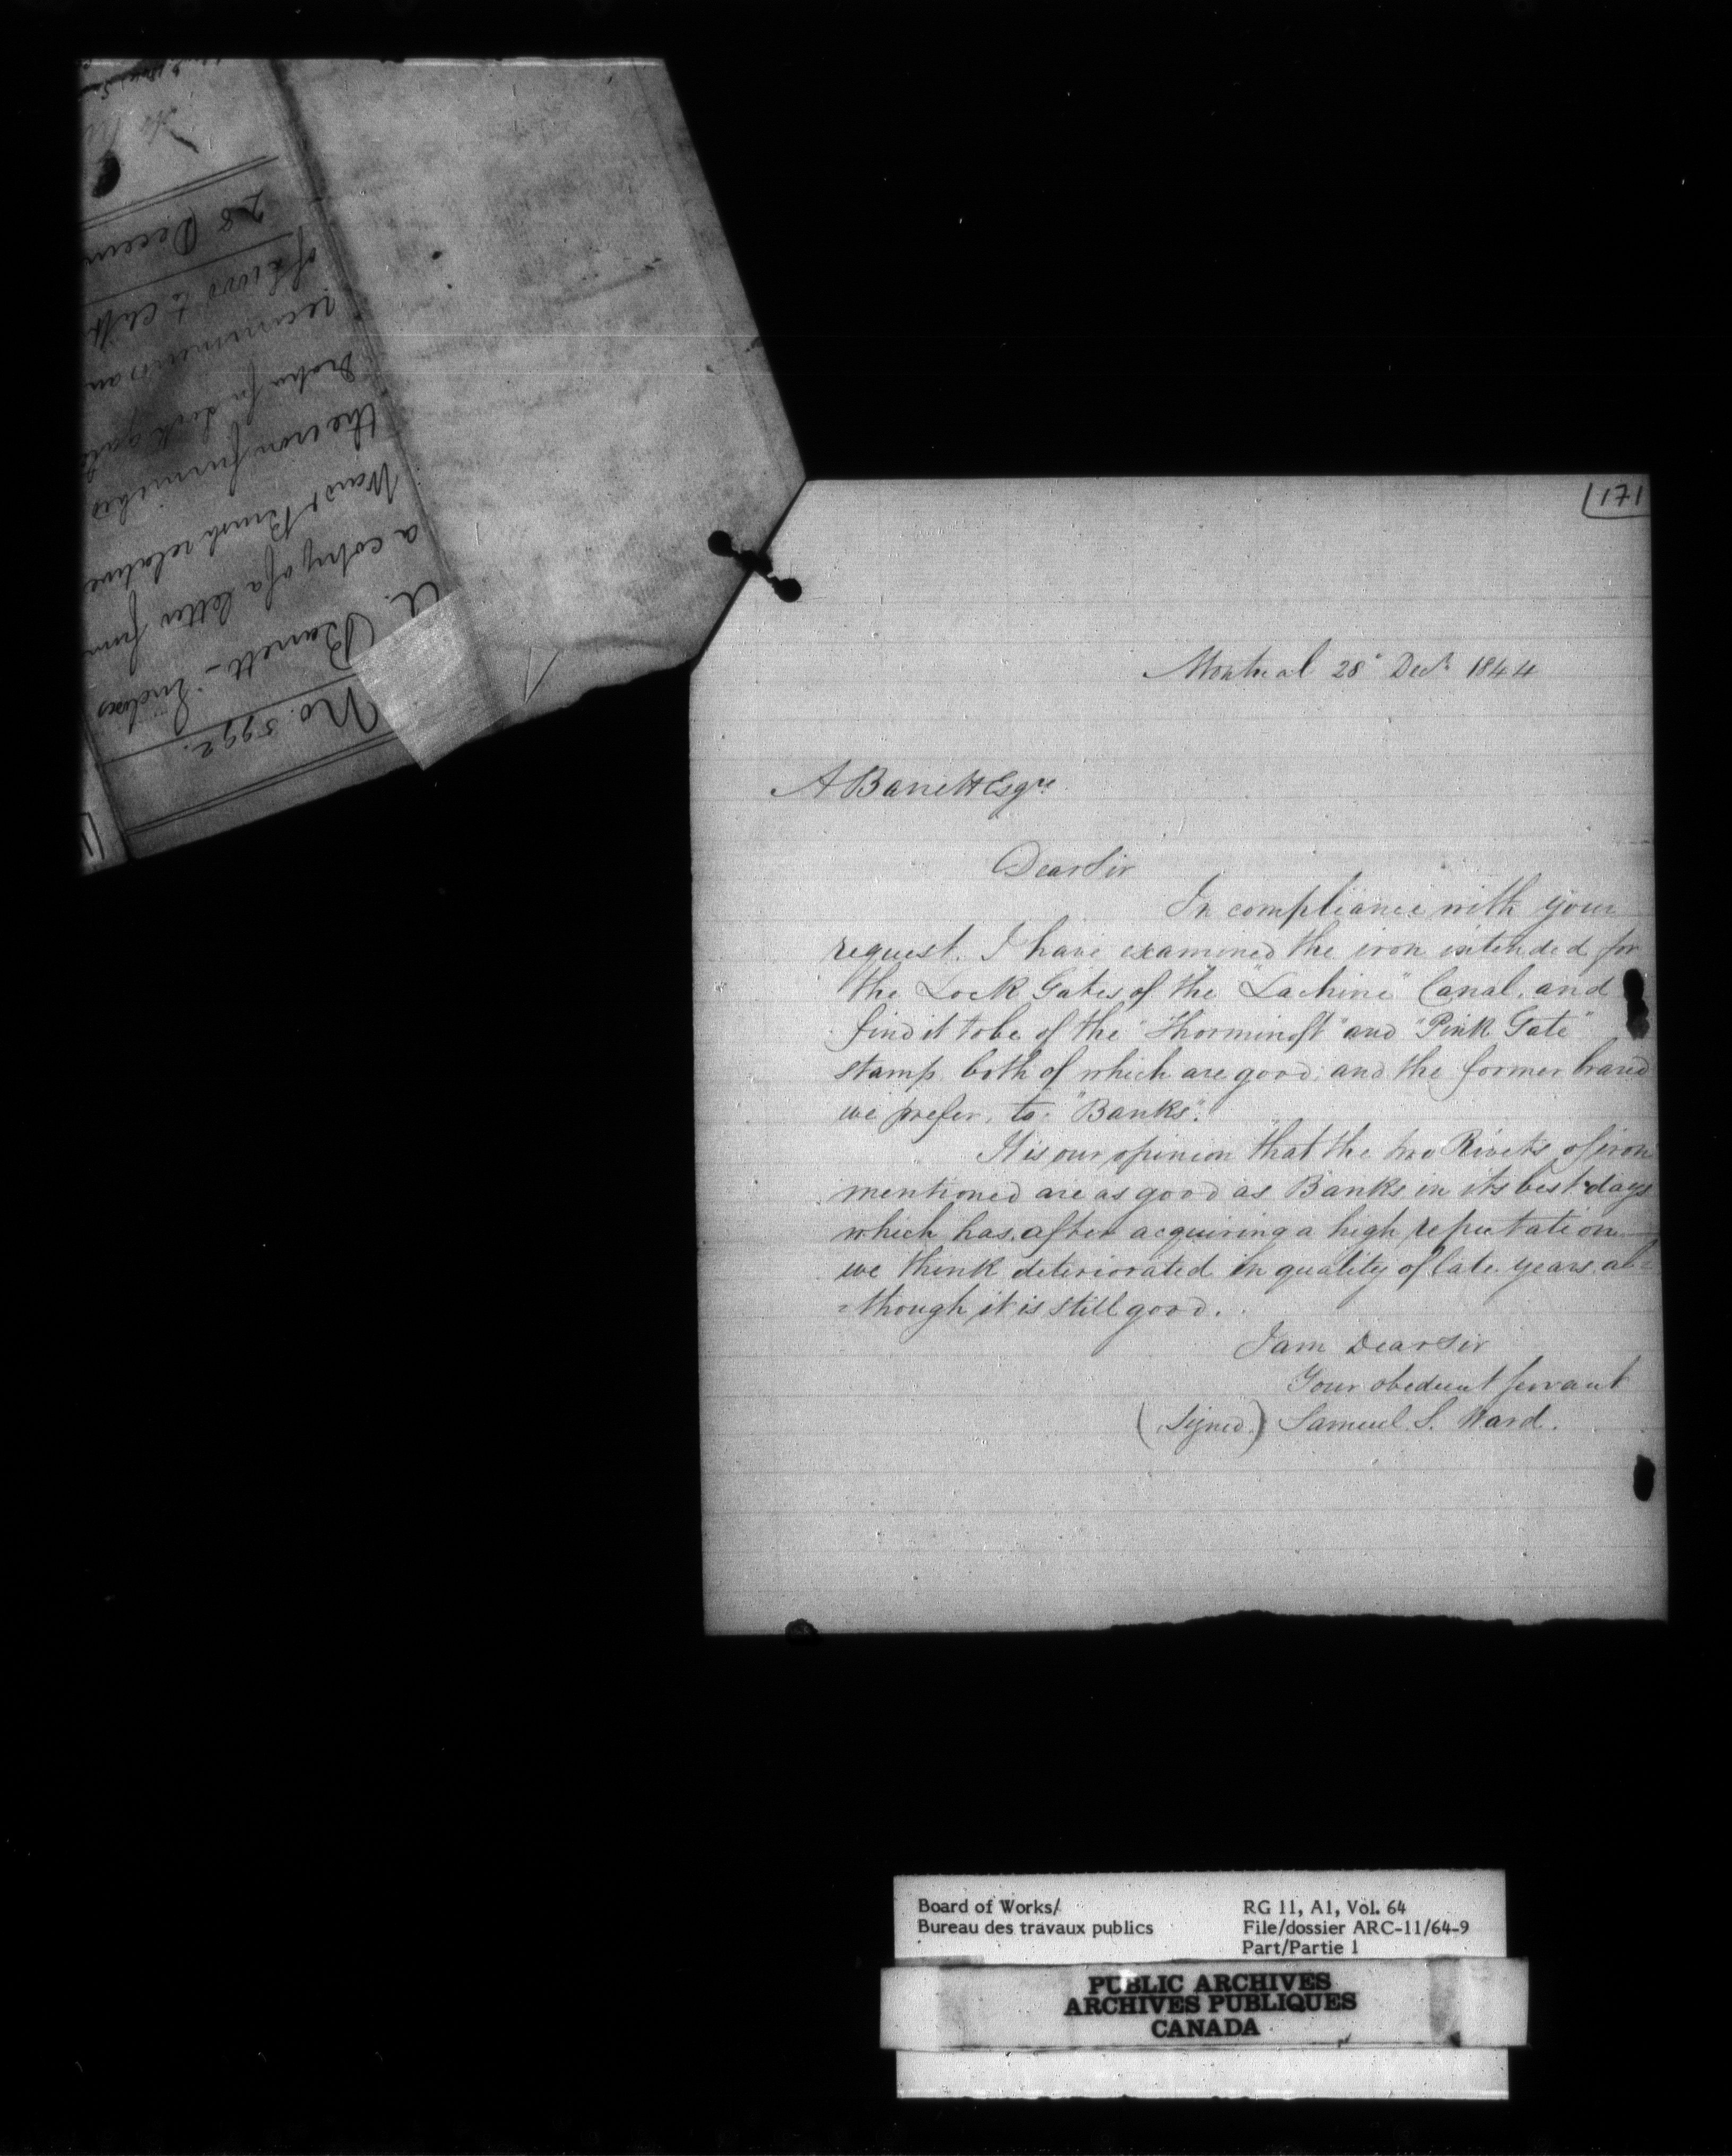 171
Montreal 28° Decr. 1844
A Barrett Esqre.
Dear Sir
In compliance with your
request. I have examined the iron intended for
the Lock Gates of the "Lachine" Canal, and
find it to be of the and "Pink Gate"
stamp, both of which are good; and the former brand
we prefer, to "Banks".
It is our opinion that the two of iron
mentioned are as good as Banks in its best days
which has, after acquiring a high reputation
we think deteriorated in quality of late years, al=
=though it is still good.
I am Dear Sir
Your obedient servant
(Signed.) Samuel S. Ward.
No. 5992.
A. Barrett - Incloses
a copy of a letter from
Ward & Brush relative
the iron furnished
for lock gates
of £1000 to
28 Decem
Board of Works/
Bureau des travaux publics
RG 11, A1, Vol. 64
File/dossier ARC-11/64-9
Part/Partie 1
PUBLIC ARCHIVES
ARCHIVES PUBLIQUES
CANADA